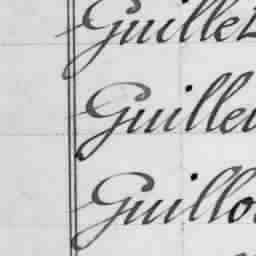 Guillet
Guille
Guillo